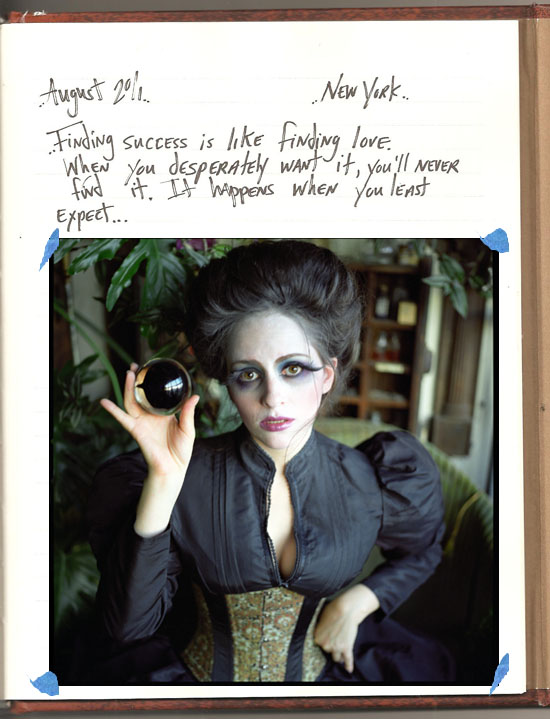 ..August 2011.. ..New York..
..Finding success is like finding love.
When you desperately want it, you'll never
find it. It happens when you least
expect...